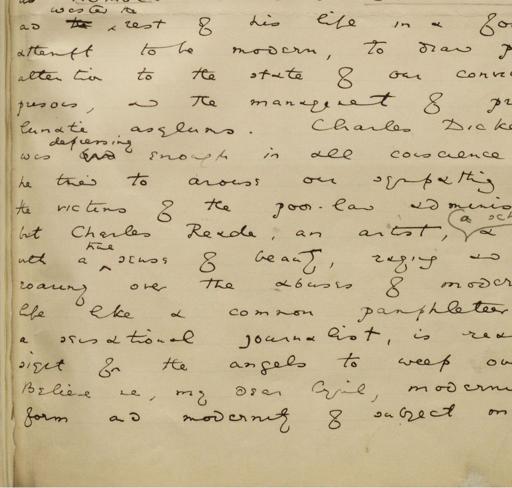 wasted the
and the rest of his life in a foo
attempt to be modern, to draw p
attention to the state of our convic
prisons, and the management of pr
lunatic asylums. Charles Dicke
depressing
was enough in all conscience
he tried to arouse our sympathy
the victims of the poor-law adminis
but Charles Reade, an artist, a sch
true
with a sense of beauty, raging and
roaring over the abuses of moder
life like a common pamphleteer
a sensational journalist, is rea
sight for the angels to weep ov
Believe me, my dear Cyril, moderni
form and modernity of subject